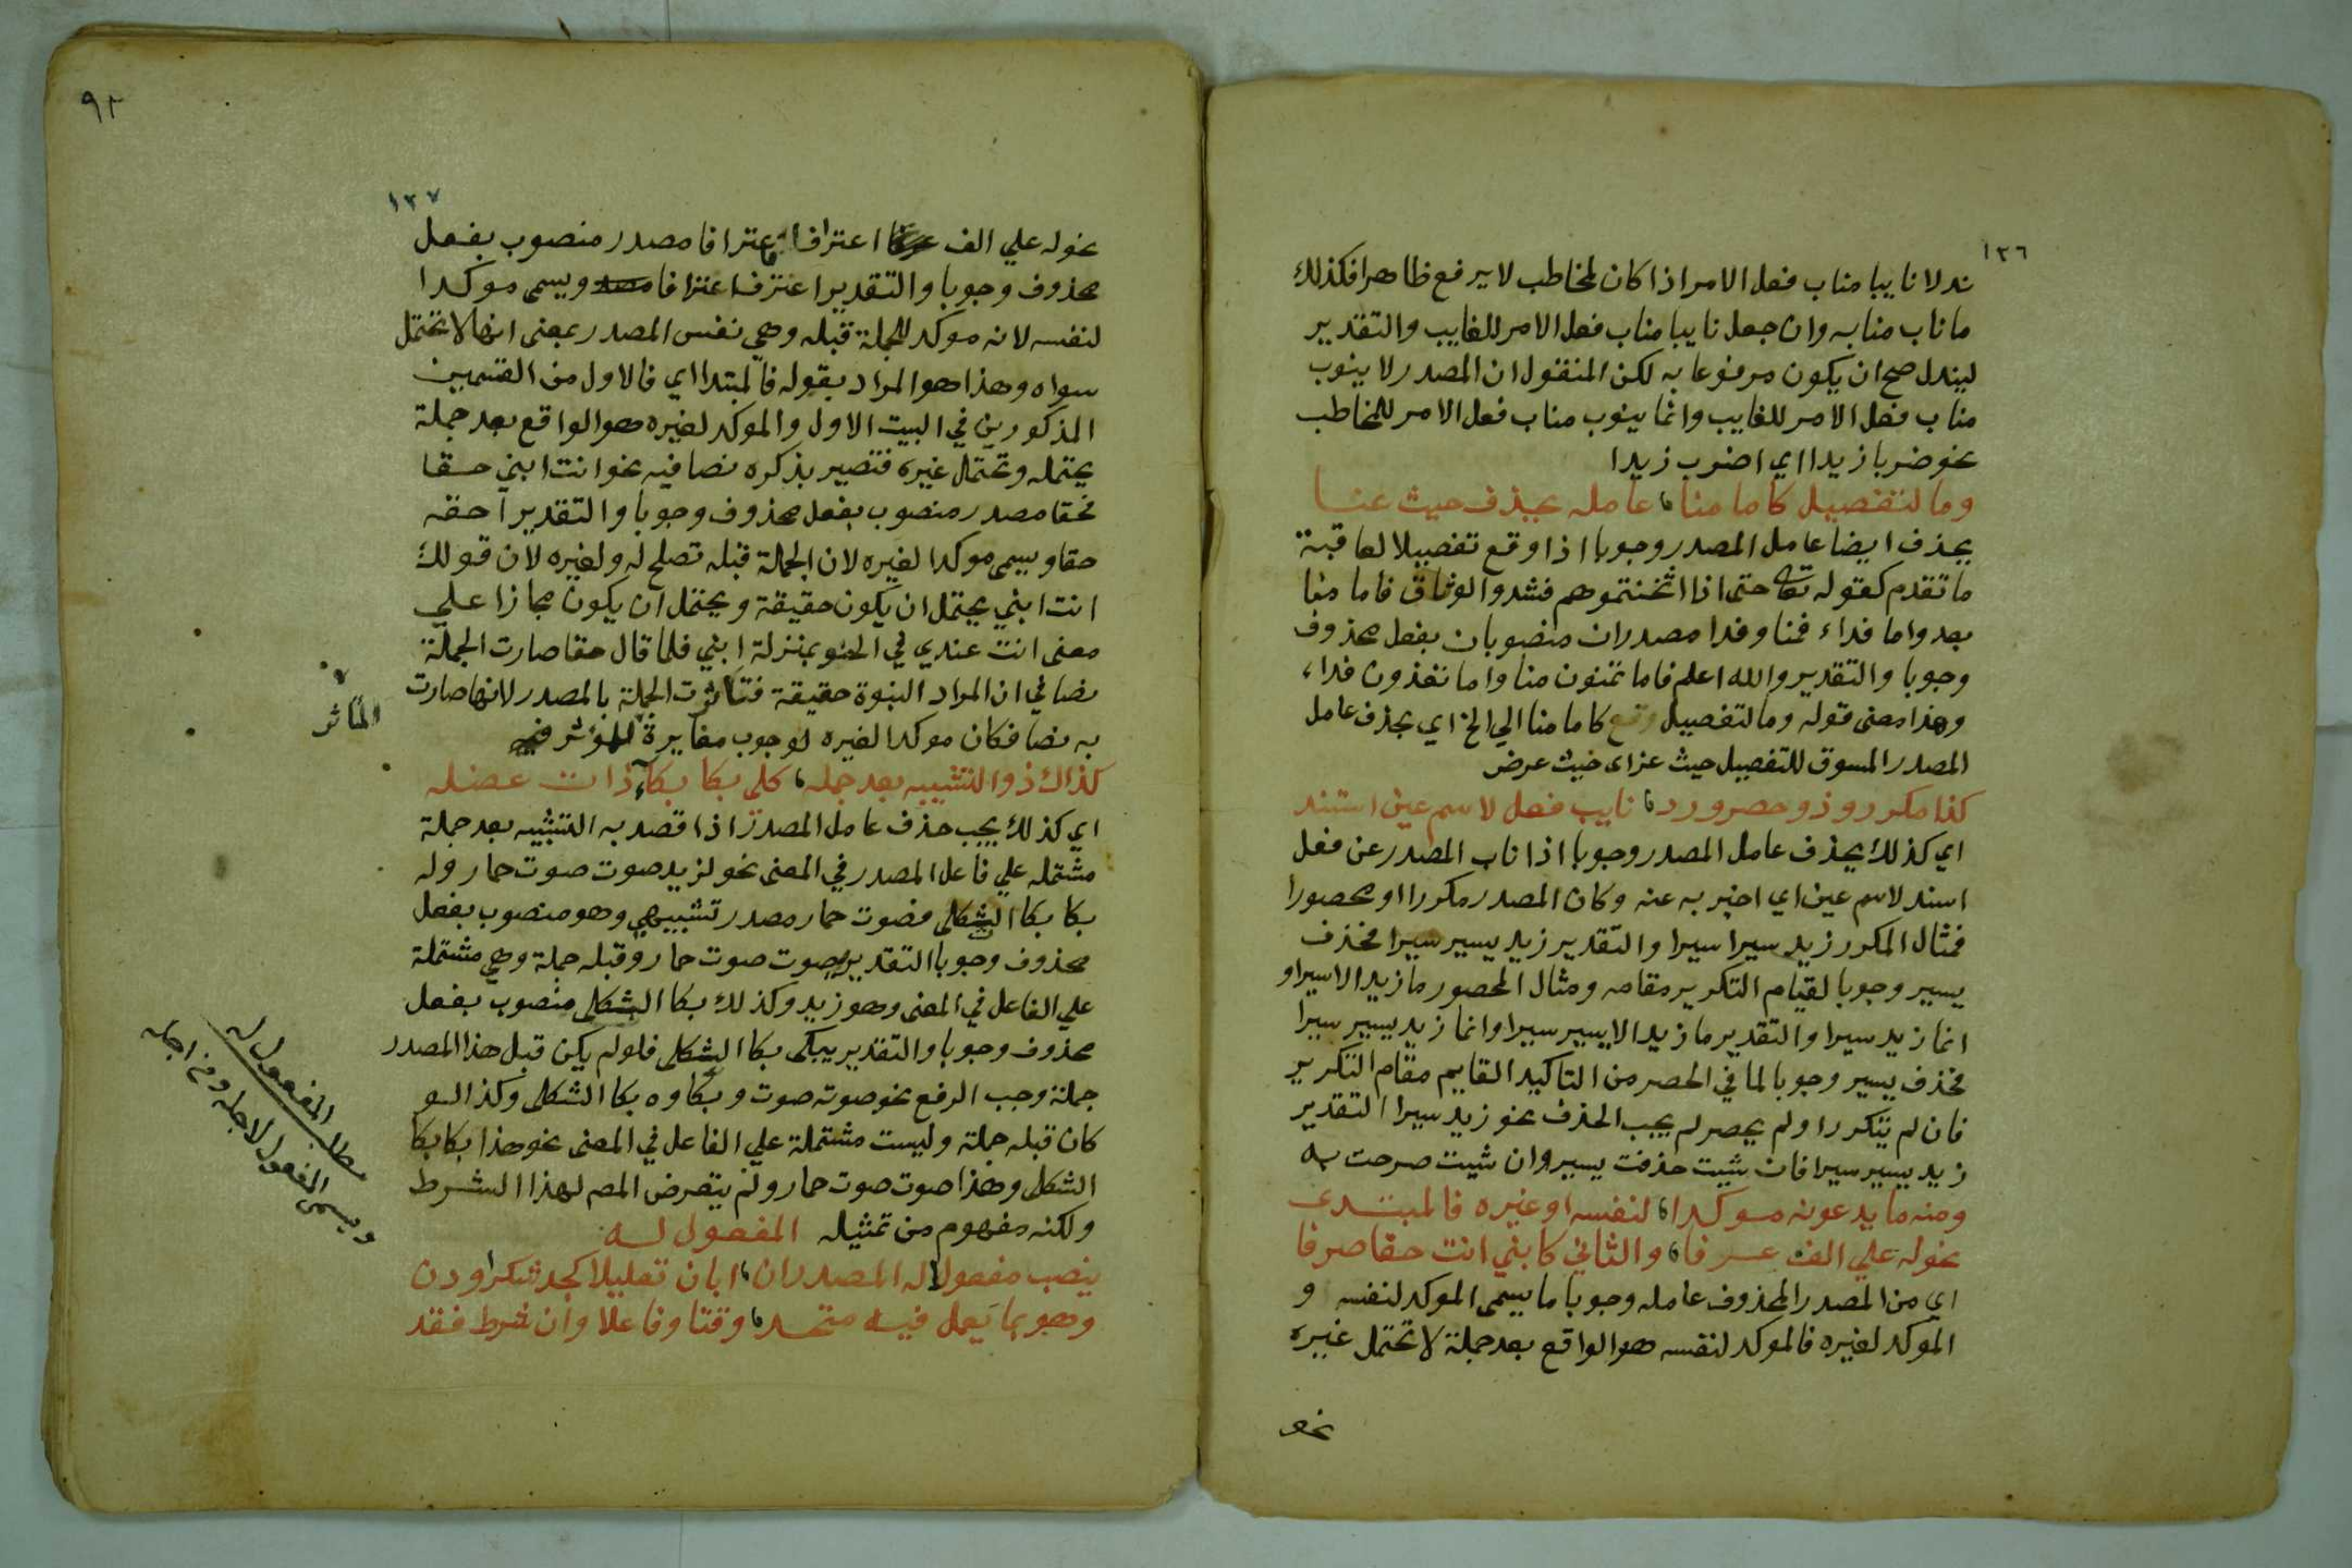 ١٣٦
ندلا نايبا مناب فعل الامر اذا كان لمخاطب لا يرفع ظاهرا فكذلك
ما ناب منابه وان جعل نايبا مناب فعل الامر للغايب والتقدير
ليندل صح ان يكون مرفوعا به لكن المنقول ان المصدر لا ينوب
مناب فعل الامر للغايب وانما ينوب مناب فعل الامر للمخاطب
نحو ضربا زيدا اي اضرب زيدا
وما لتفصيل كاما منا عامله يحذف حيث عنا
يحذف ايضا عامل المصدر وجوبا اذا وقع تفصيلا لعاقبة
ما تقدم كقوله تعا حتى اذا اثخنتموهم فشدوا الوثاق فاما منا
بعد واما فداء فمنا وفدا مصدران منصوبان بفعل محذوف
وجوبا والتقدير والله اعلم فاما تمنون منا واما تفدون فداء
وهذا معنى قوله وما لتفصيل كاما منا الي الخ اي يحذف عامل
المصدر المسوق للتفصيل حيث عن اي حيث عرض
كذا مكرر وذو حصر ورد نايب فعل لاسم عين استند
اي كذلك يحذف عامل المصدر وجوبا اذا ناب المصدر عن فعل
اسند لاسم عين اي اخبر به عنه وكان المصدر مكررا او محصورا
فمثال المكرر زيد سيرا سيرا والتقدير زيد يسير سيرا فحذف
يسير وجوبا لقيام التكرير مقامه ومثال المحصور ما زيد الا سيرا و
انما زيد سيرا والتقدير ما زيد الا يسير سيرا وانما زيد يسير سيرا
فحذف يسير وجوبا لما في الحصر من التاكيد القايم مقام التكرير
فان لم يتكرر او لم يحصر لم يجب الحذف نحو زيد سيرا التقدير
زيد يسير سيرا فان شيت حذفت يسير وان شيت صرحت به
ومنه ما يدعونه موكدا لنفسه او غيره فالمبتدي
نحو له علي الف عرفا والثاني كابني انت حقا صرفا
اي من المصدر المحذوف عامله وجوبا ما يسمى الموكد لنفسه و
الموكد لغيره فالموكد لنفسه هو الواقع بعد جملة لا تحتمل غيره
نحو
٩٢
١٣٧
نحو له علي الف اعترافا فاعترافا مصدر منصوب بفعل
محذوف وجوبا والتقدير اعترف اعترافا ويسمى موكدا
لنفسه لانه موكد للجملة قبله وهي نفس المصدر بمعنى انها لا تحتمل
سواه وهذا هو المراد بقوله فالمبتدا اي فالاول من القسمين
المذكورين في البيت الاول والموكد لغيره هو الواقع بعد جملة
يحتمله وتحتمل غيره فتصير بذكره نصا فيه نحو انت ابني حقا
فحقا مصدر منصوب بفعل محذوف وجوبا والتقدير احقه
حقا ويسمى موكدا لغيره لان الجملة قبله تصلح له ولغيره لان قولك
انت ابني يحتمل ان يكون حقيقة ويحتمل ان يكون مجازا علي
معنى انت عندي في الحنو بمنزلة ابني فلما قال حقا صارت الجملة
نصا في ان المراد البنوة حقيقة فتاثرت الجملة بالمصدر لانها صارت
به نصا فكان موكدا لغيره لوجوب مغايرة الموثر
كذاك ذو التشبيه بعد جمله كلي بكا بكاء ذات عضله
اي كذلك يجب حذف عامل المصدر اذا قصد به التشبيه بعد جملة
مشتمله علي فاعل المصدر في المعنى نحو لزيد صوت صوت حمار وله
بكا بكا الشكلى فصوت حمار مصدر تشبيهي وهو منصوب بفعل
محذوف وجوبا التقدير يصوت صوت حمار وقبله جملة وهي مشتملة
علي الفاعل في المعنى وهو زيد وكذلك بكا الشكلى منصوب بفعل
محذوف وجوبا والتقدير يبكى بكا الشكلى فلو لم يكن قبل هذا المصدر
جملة وجب الرفع نحو صوته صوت وبكاوه بكا الشكلى وكذا لو
كان قبله جملة وليست مشتملة علي الفاعل في المعنى نحو هذا بكا بكا
الشكلى وهذا صوت صوت حمار ولم يتعرض المص لهذا الشرط
ولكنه مفهوم من تمثيله المفعول له
ينصب مفعولا له المصدر ان ابان تعليلا كجد شكرا ودن
وهو بما يعمل فيه متحد وقتا وفاعلا وان شرط فقد
المتاثر
مطلب المفعول له
ويسمى المفعول لاجله ومن اجله